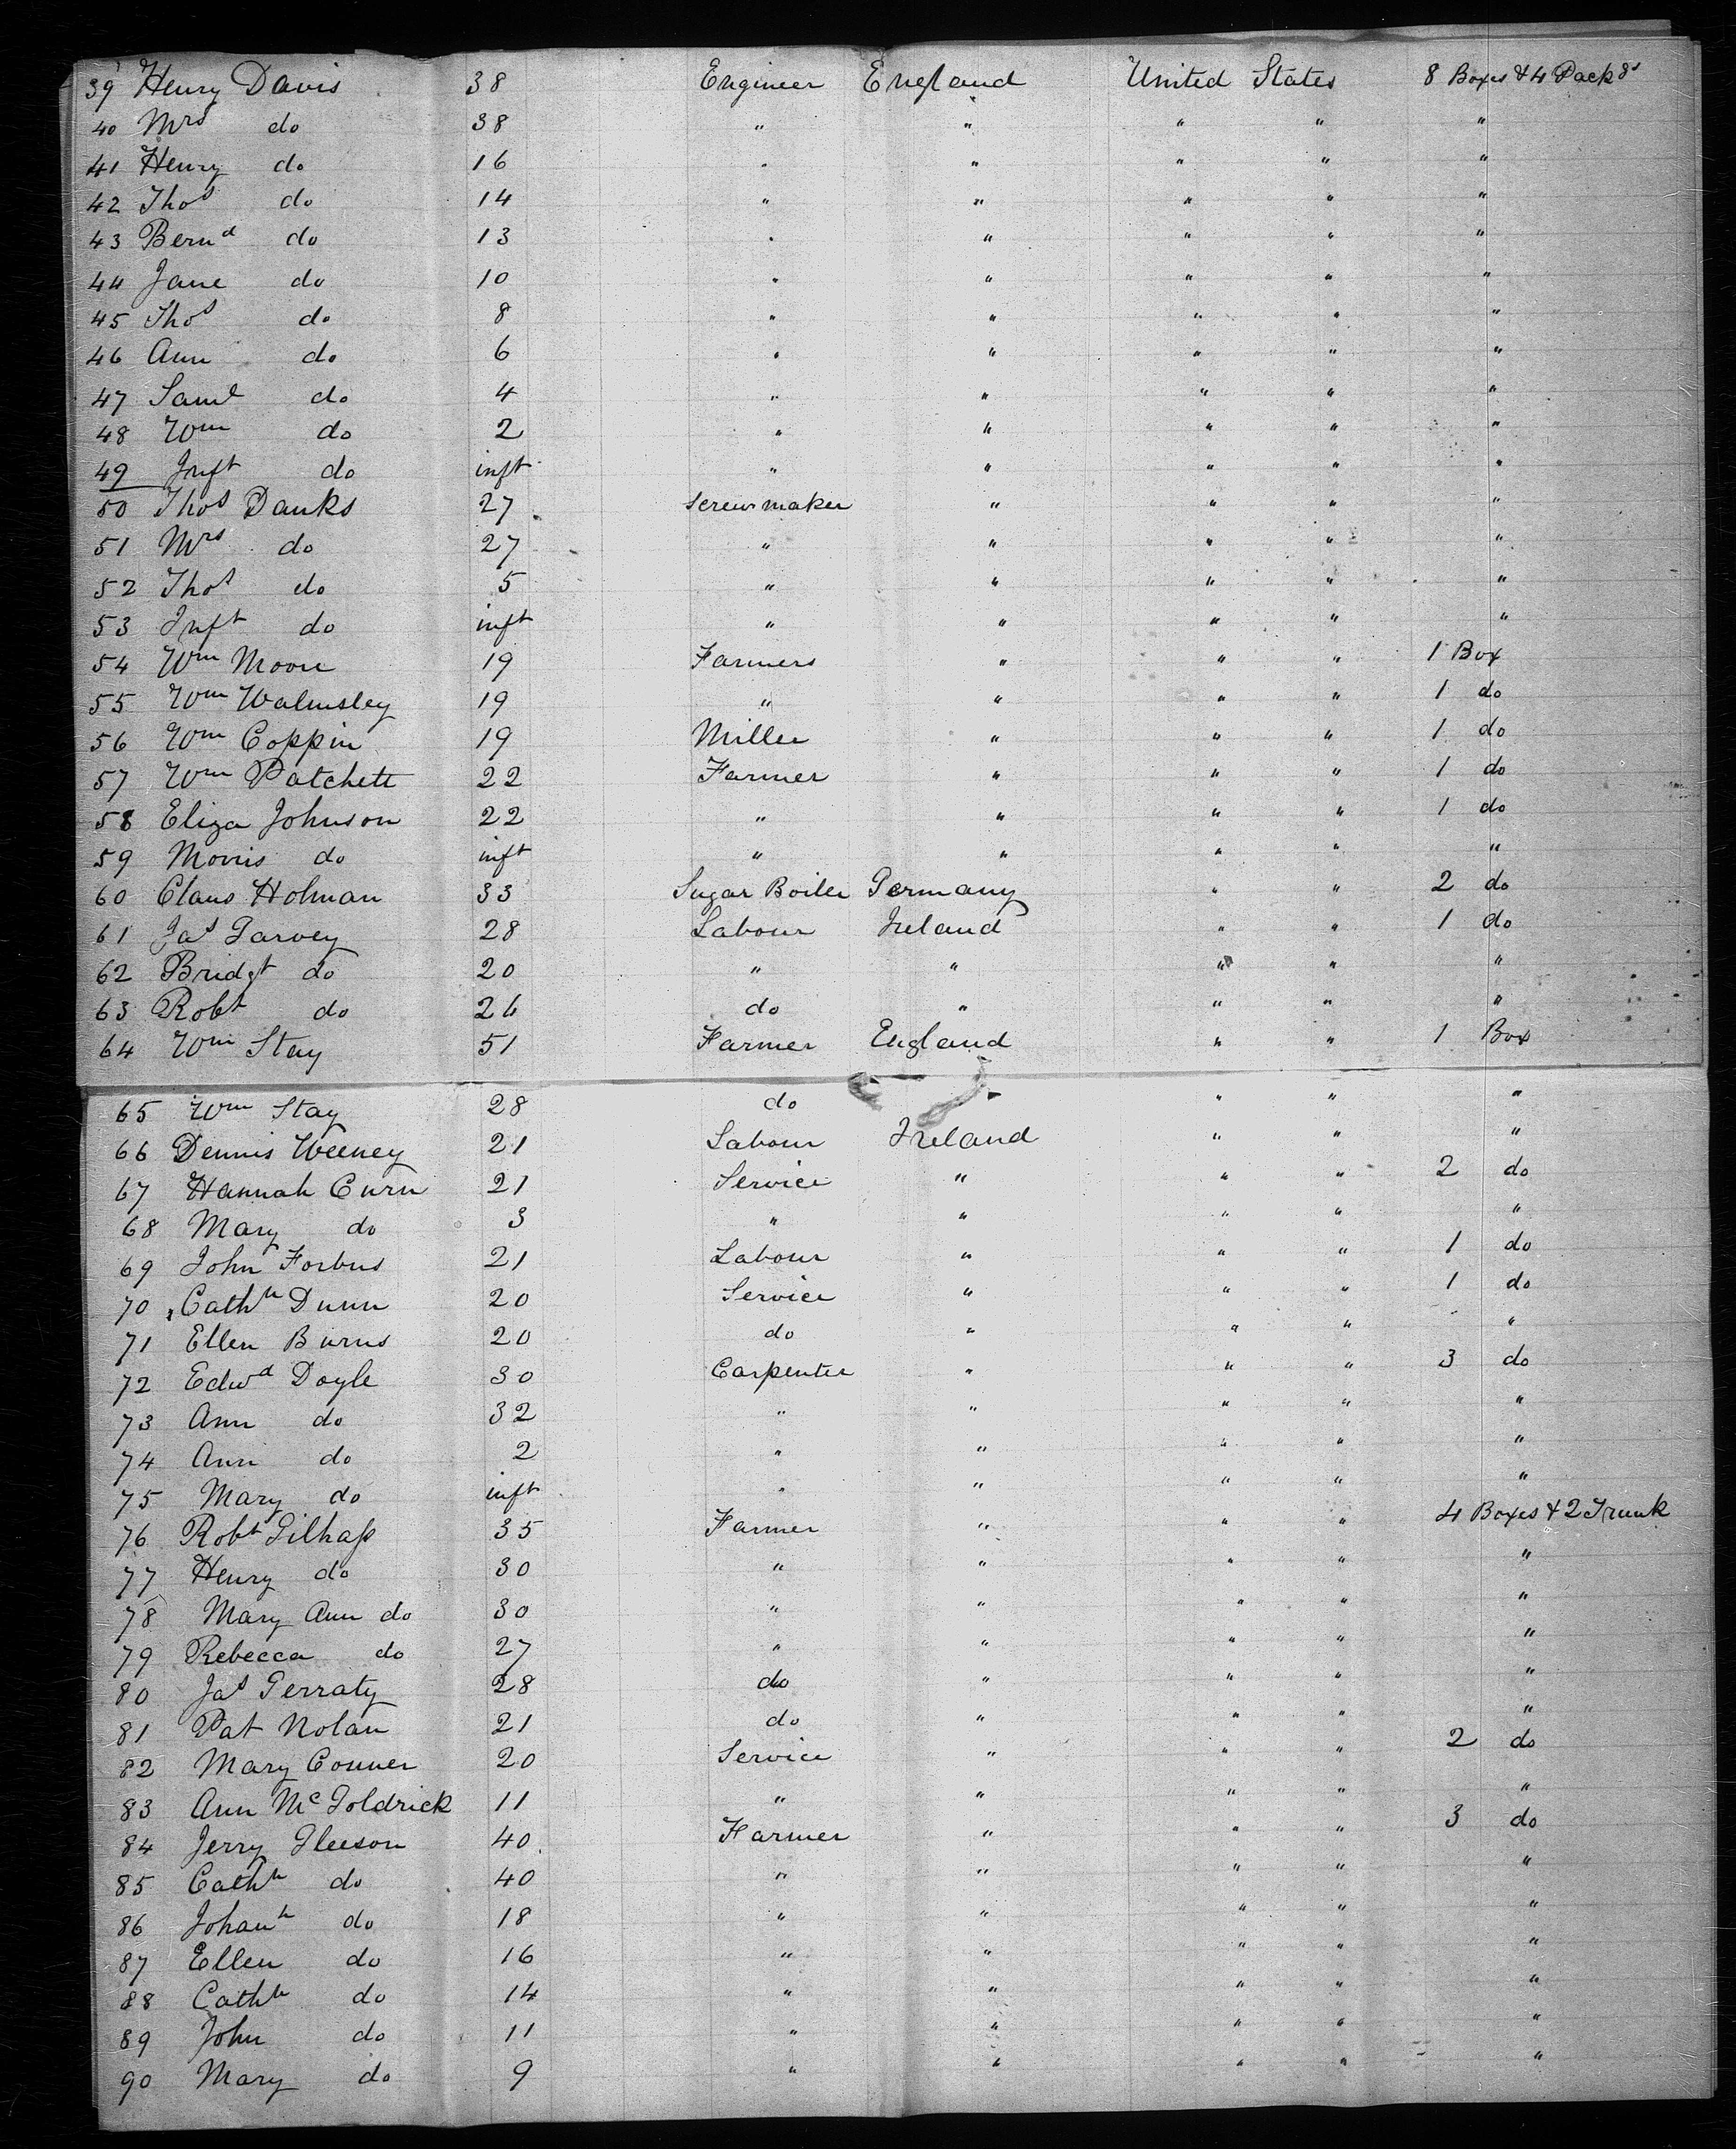 39 Henry Davis 38 Engineer England United States 8 Boxes & 4 Packgs
40 Mrs do 38 " " " " "
41 Henry do 16 " " " " "
42 Thos do 14 " " " " "
43 Bernd do 13 " " " " "
44 Jane do 10 " " " " "
45 Thos do 8 " " " " "
46 Ann do 6 " " " " "
47 Saml do 4 " " " " "
48 Wm do 2 " " " " "
49 Inft do inft " " " " "
50 Thos Danks 27 Screwmaker " " " "
51 Mrs do 27 " " " " "
52 Thos do 5 " " " " "
53 Inft do inft " " " " "
54 Wm Moon 19 Farmers " " " 1 Box
55 Wm Walmsley 19 " " " " 1 do
56 Wm Coppin 19 Miller " " " 1 do
57 Wm Patchett 22 Farmer " " " 1 do
58 Eliza Johnson 22 " " " " 1 do
59 Morris do inft " " " " "
60 Claus Holman 33 Sugar Boiler Germany " " 2 do
61 Jas Garvey 28 Labour Ireland " " 1 do
62 Bridgt do 20 " " " " "
63 Robt do 26 do " " " "
64 Wm Stay 51 Farmer England " " 1 Box
65 Wm Stay 28 do " " " "
66 Dennis Weeney 21 Labour Ireland " " "
67 Hannah Curn 21 Service " " " 2 do
68 Mary do 3 " " " " "
69 John Forbus 21 Labour " " " 1 do
70 Cathn Dunn 20 Service " " " 1 do
71 Ellen Burns 20 do " " " "
72 Edwd Doyle 30 Carpenter " " " 3 do
73 Ann do 32 " " " " "
74 Ann do 2 " " " " "
75 Mary do inft " " " " "
76 Robt Gilhass 35 Farmer " " " 4 Boxes & 2 Trunk
77 Henry do 30 " " " " "
78 Mary Ann do 30 " " " " "
79 Rebecca do 27 " " " " "
80 Jas Gerraty 28 do " " " "
81 Pat Nolan 21 do " " " "
82 Mary Conner 20 Service " " " 2 do
83 Ann McGoldrick 11 " " " " "
84 Jerry Gleeson 40 Farmer " " " 3 do
85 Cathn do 40 " " " " "
86 Johanh do 18 " " " " "
87 Ellen do 16 " " " " "
88 Cathn do 14 " " " " "
89 John do 11 " " " " "
90 Mary do 9 " " " " "